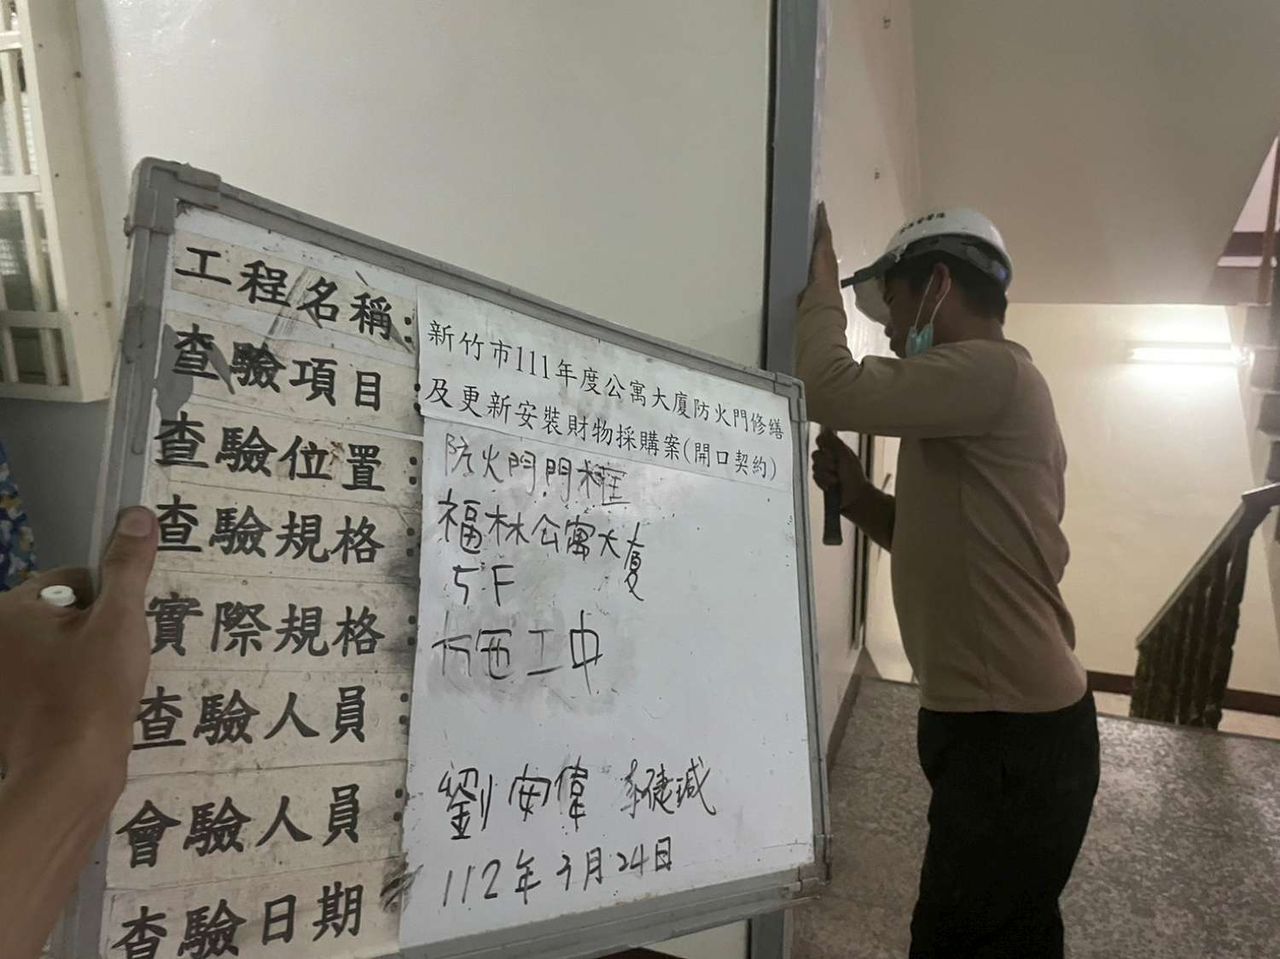 工程名稱：
新竹市111年度公寓大廈防火門修繕
及更新安裝財物採購案(開口契約)
查驗項目：
防火門門框
查驗位置：
福林公寓大廈
5F
查驗規格：
實際規格：
施工中
查驗人員：
會驗人員：
劉安偉
查驗日期：
112年3月24日